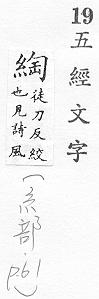 19
五經文字
綯
徒刀反絞
也見詩風
(糸部.p.61